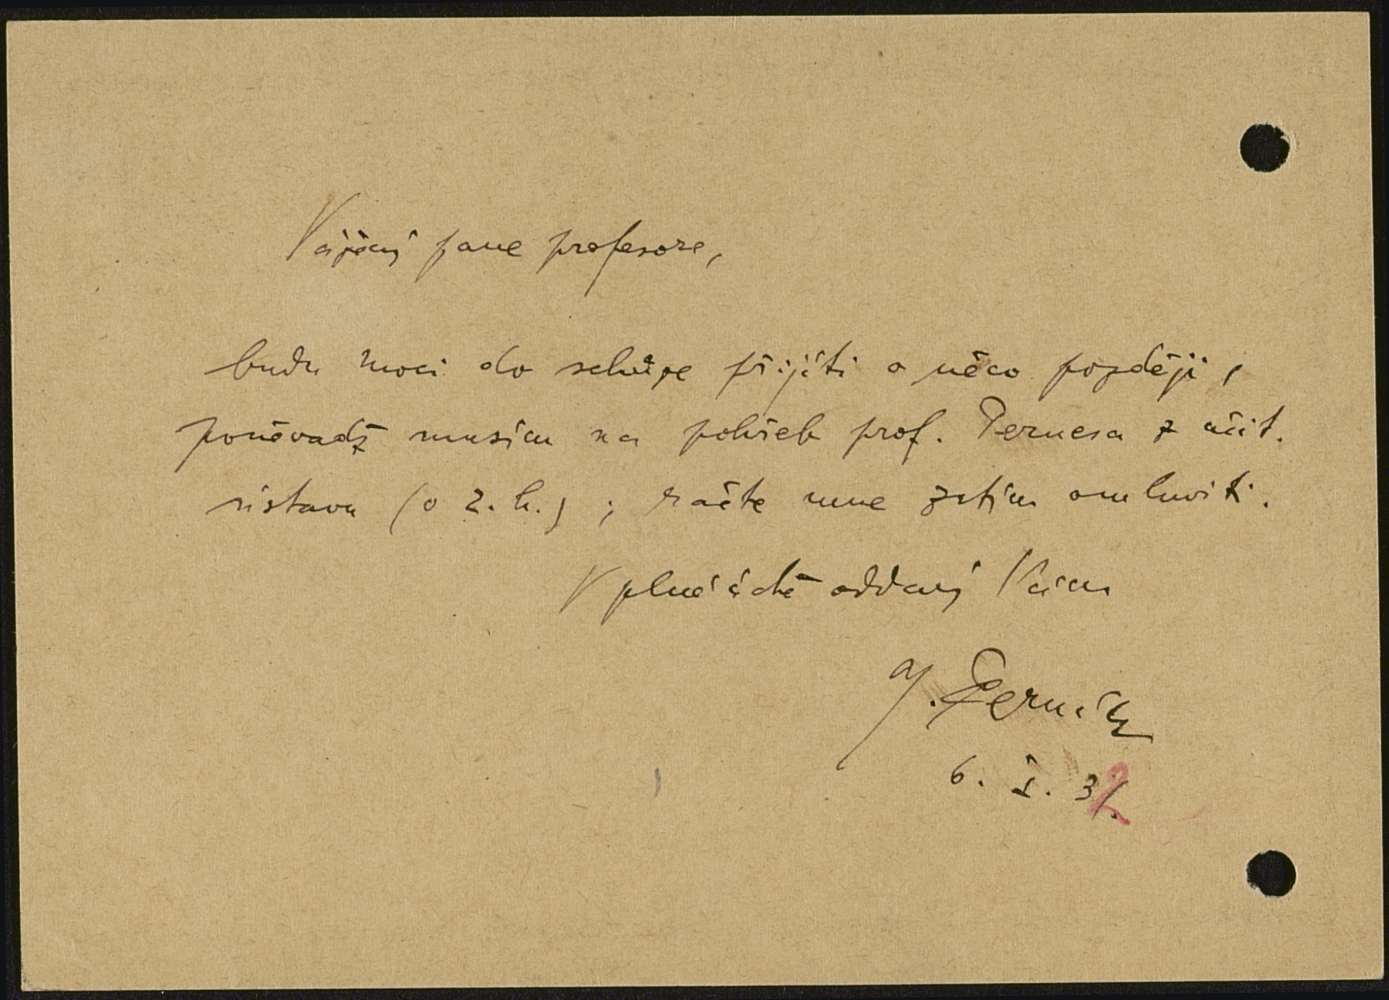 Vážený pane profesore,
budu moci do schůze přijíti o něco později,
poněvadž musím na pohřeb prof. Pernesa z účit.
ústavu (o 2. h.) ; račte mne zatím omluviti.
V plné úctě oddaný Vám
J. Černík
6. I. 32